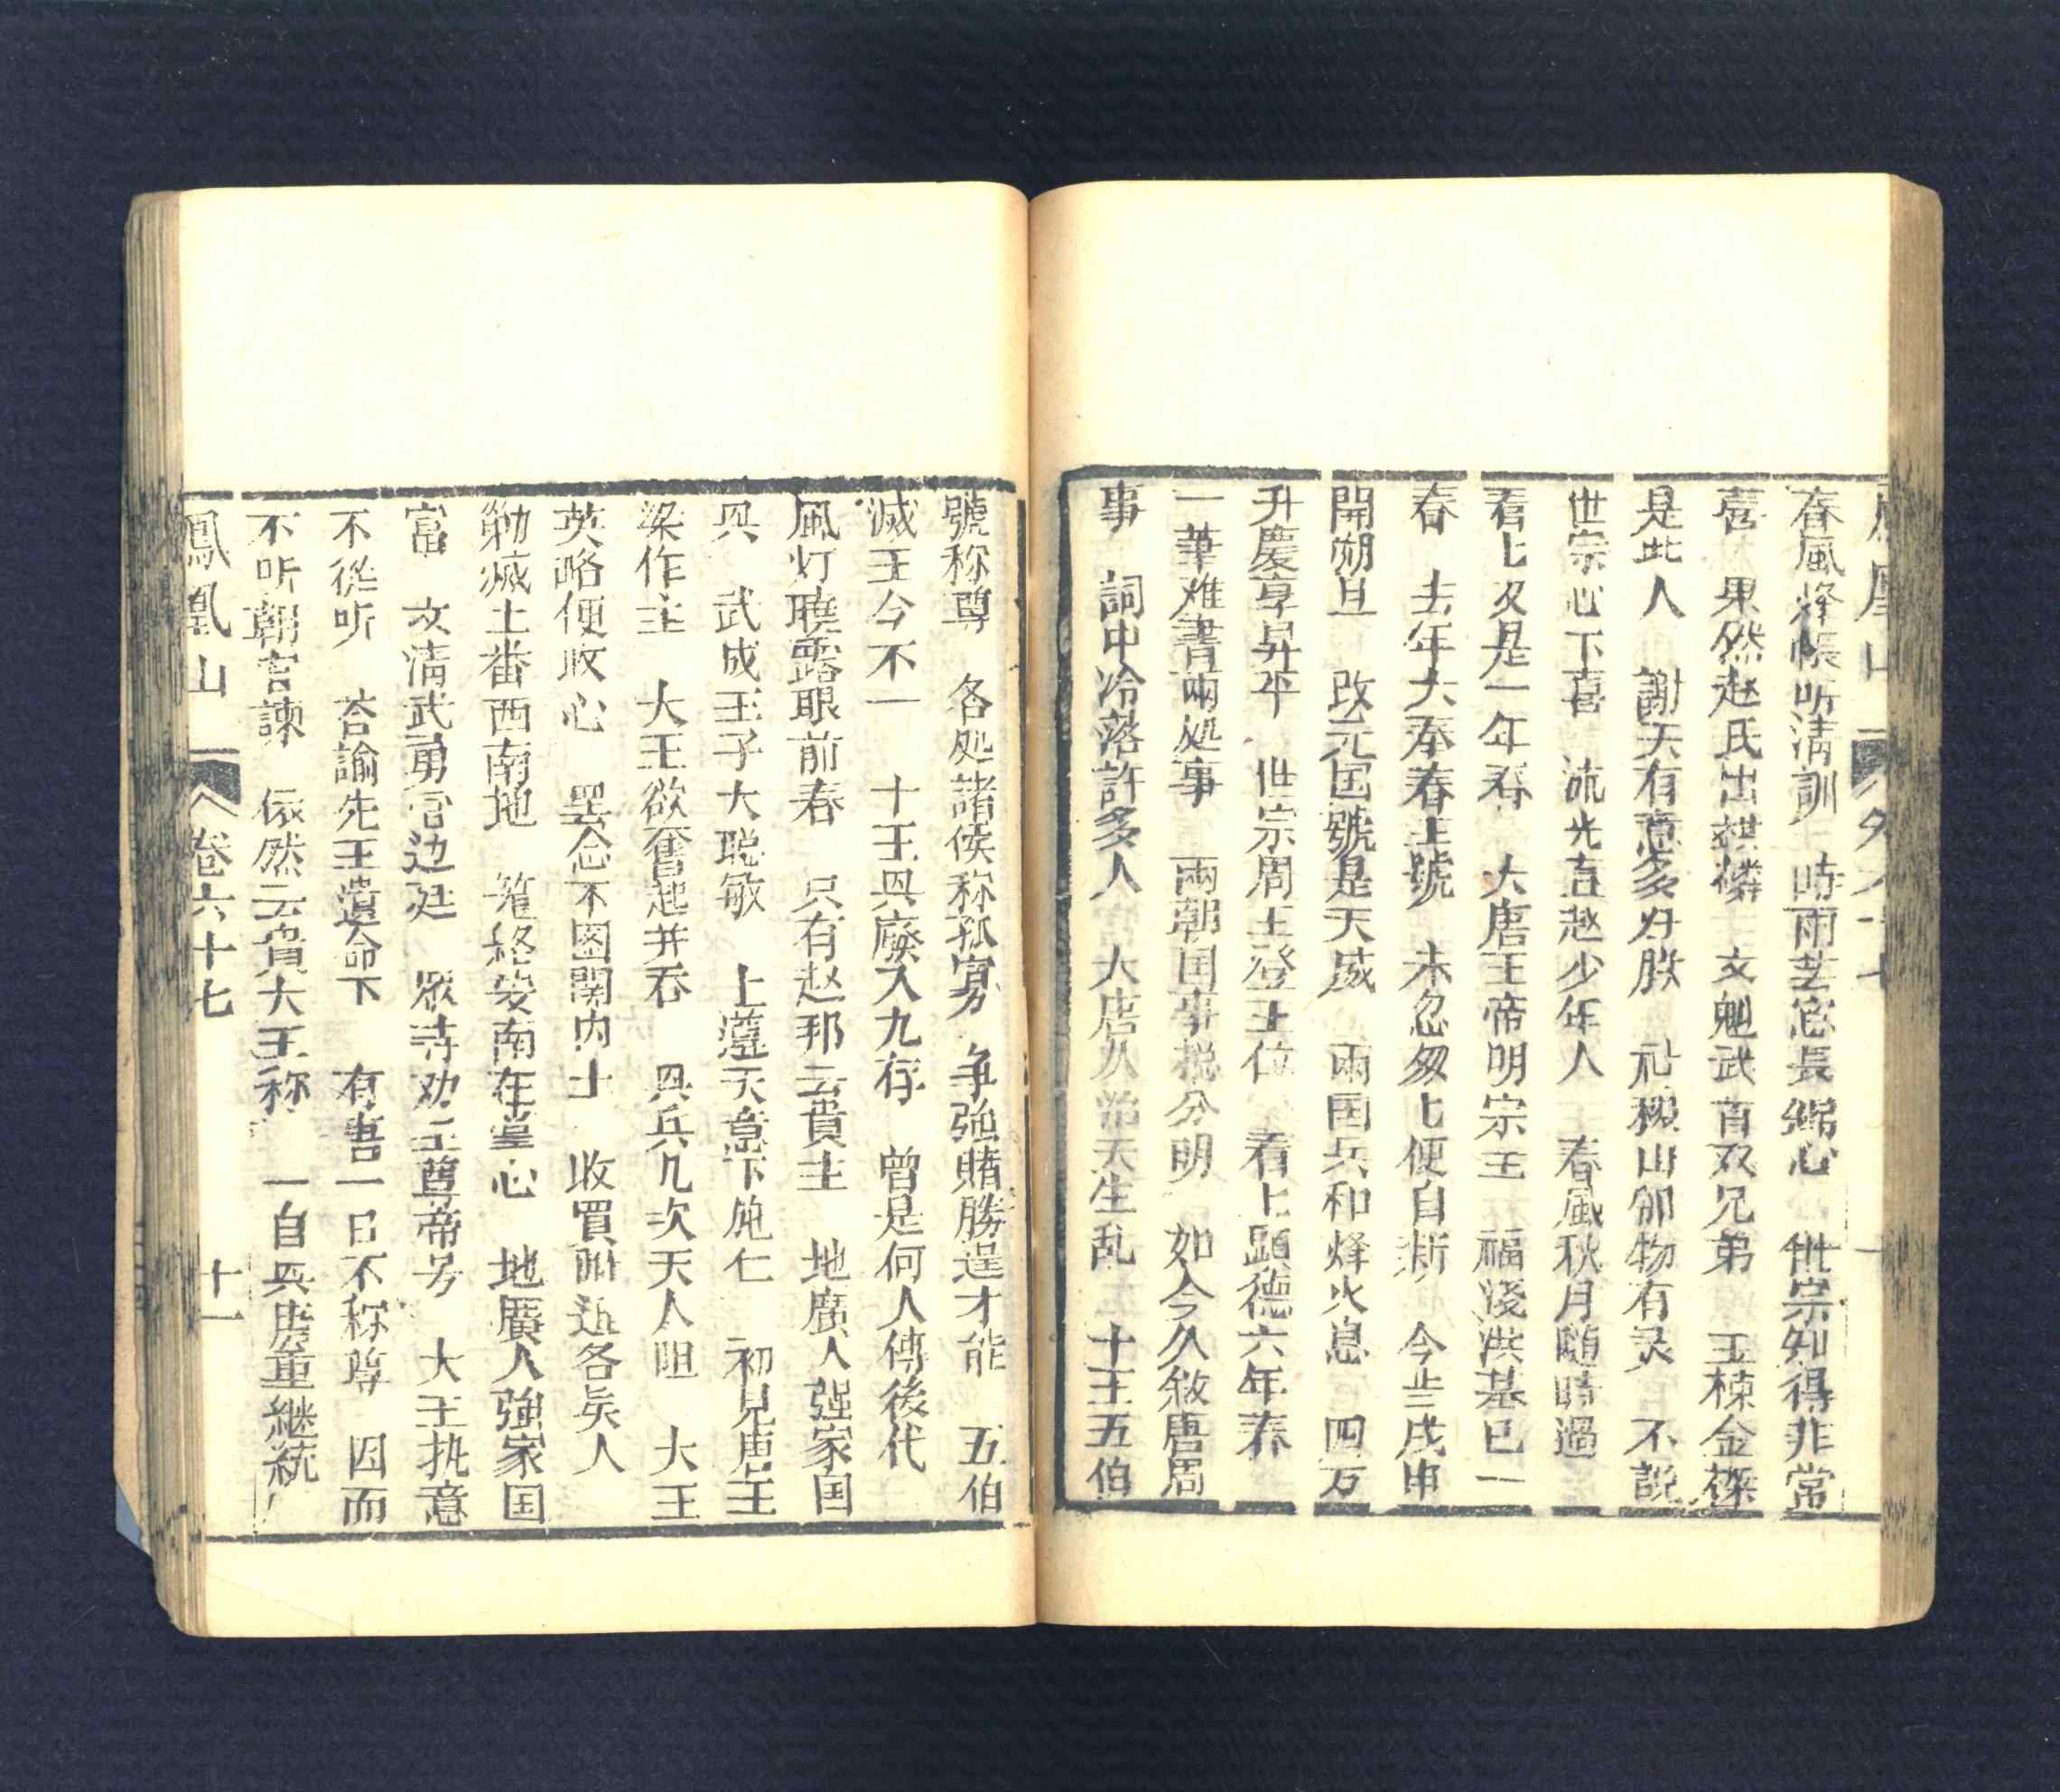 春風絳帳听清訓 時雨芸窓長綿心 世宗知得非常
喜 果然赵氏出麒麟 文魁武首双兄弟 玉棟金樑
是此人 謝天有意多好殷 社稷山卿物有灵 不説
世宗心下喜 流光直趂少年人 春風秋月随時過
看七又是一年春 大唐王帝明宗主 福淺洪基已一
春 去年大奉春王號 未忍匆七便自新 今歲戊申
開朔旦 改元囯號是天威 兩国兵和烽火息 四万
升慶享昇平 世宗周主登王位 看七顕德六年春
一筆难書兩処事 兩朝囯事捴分明 如今久敘唐周
事 詞中冷落許多人 大唐久治天生乱 十王五伯
號称尊 各処諸侯称孤寡 争強賭勝逞才能 五伯
滅王今不一 十王㒷廢又九存 曾是何人傳後代
風灯曉露眼前春 只有赵邦云貴主 地廣人强家国
㒷 武成王子大聪敏 上遵天意下施仁 初見唐王
梁作主 大王欲奮起并吞 㒷兵几次天人阻 大王
英略便收心 罢念不图関内土 收買鄰近各矣人
勦滅土番西南地 籠絡安南在掌心 地廣人強家国
富 文清武勇官边廷 眾等劝王尊帝号 大王执意
不從听 荅諭先王遺命下 有吾一日不称尊 因而
不听朝官諫 依然云貴大王称 一自㒷唐重継統
鳳凰山 卷六十七 十一